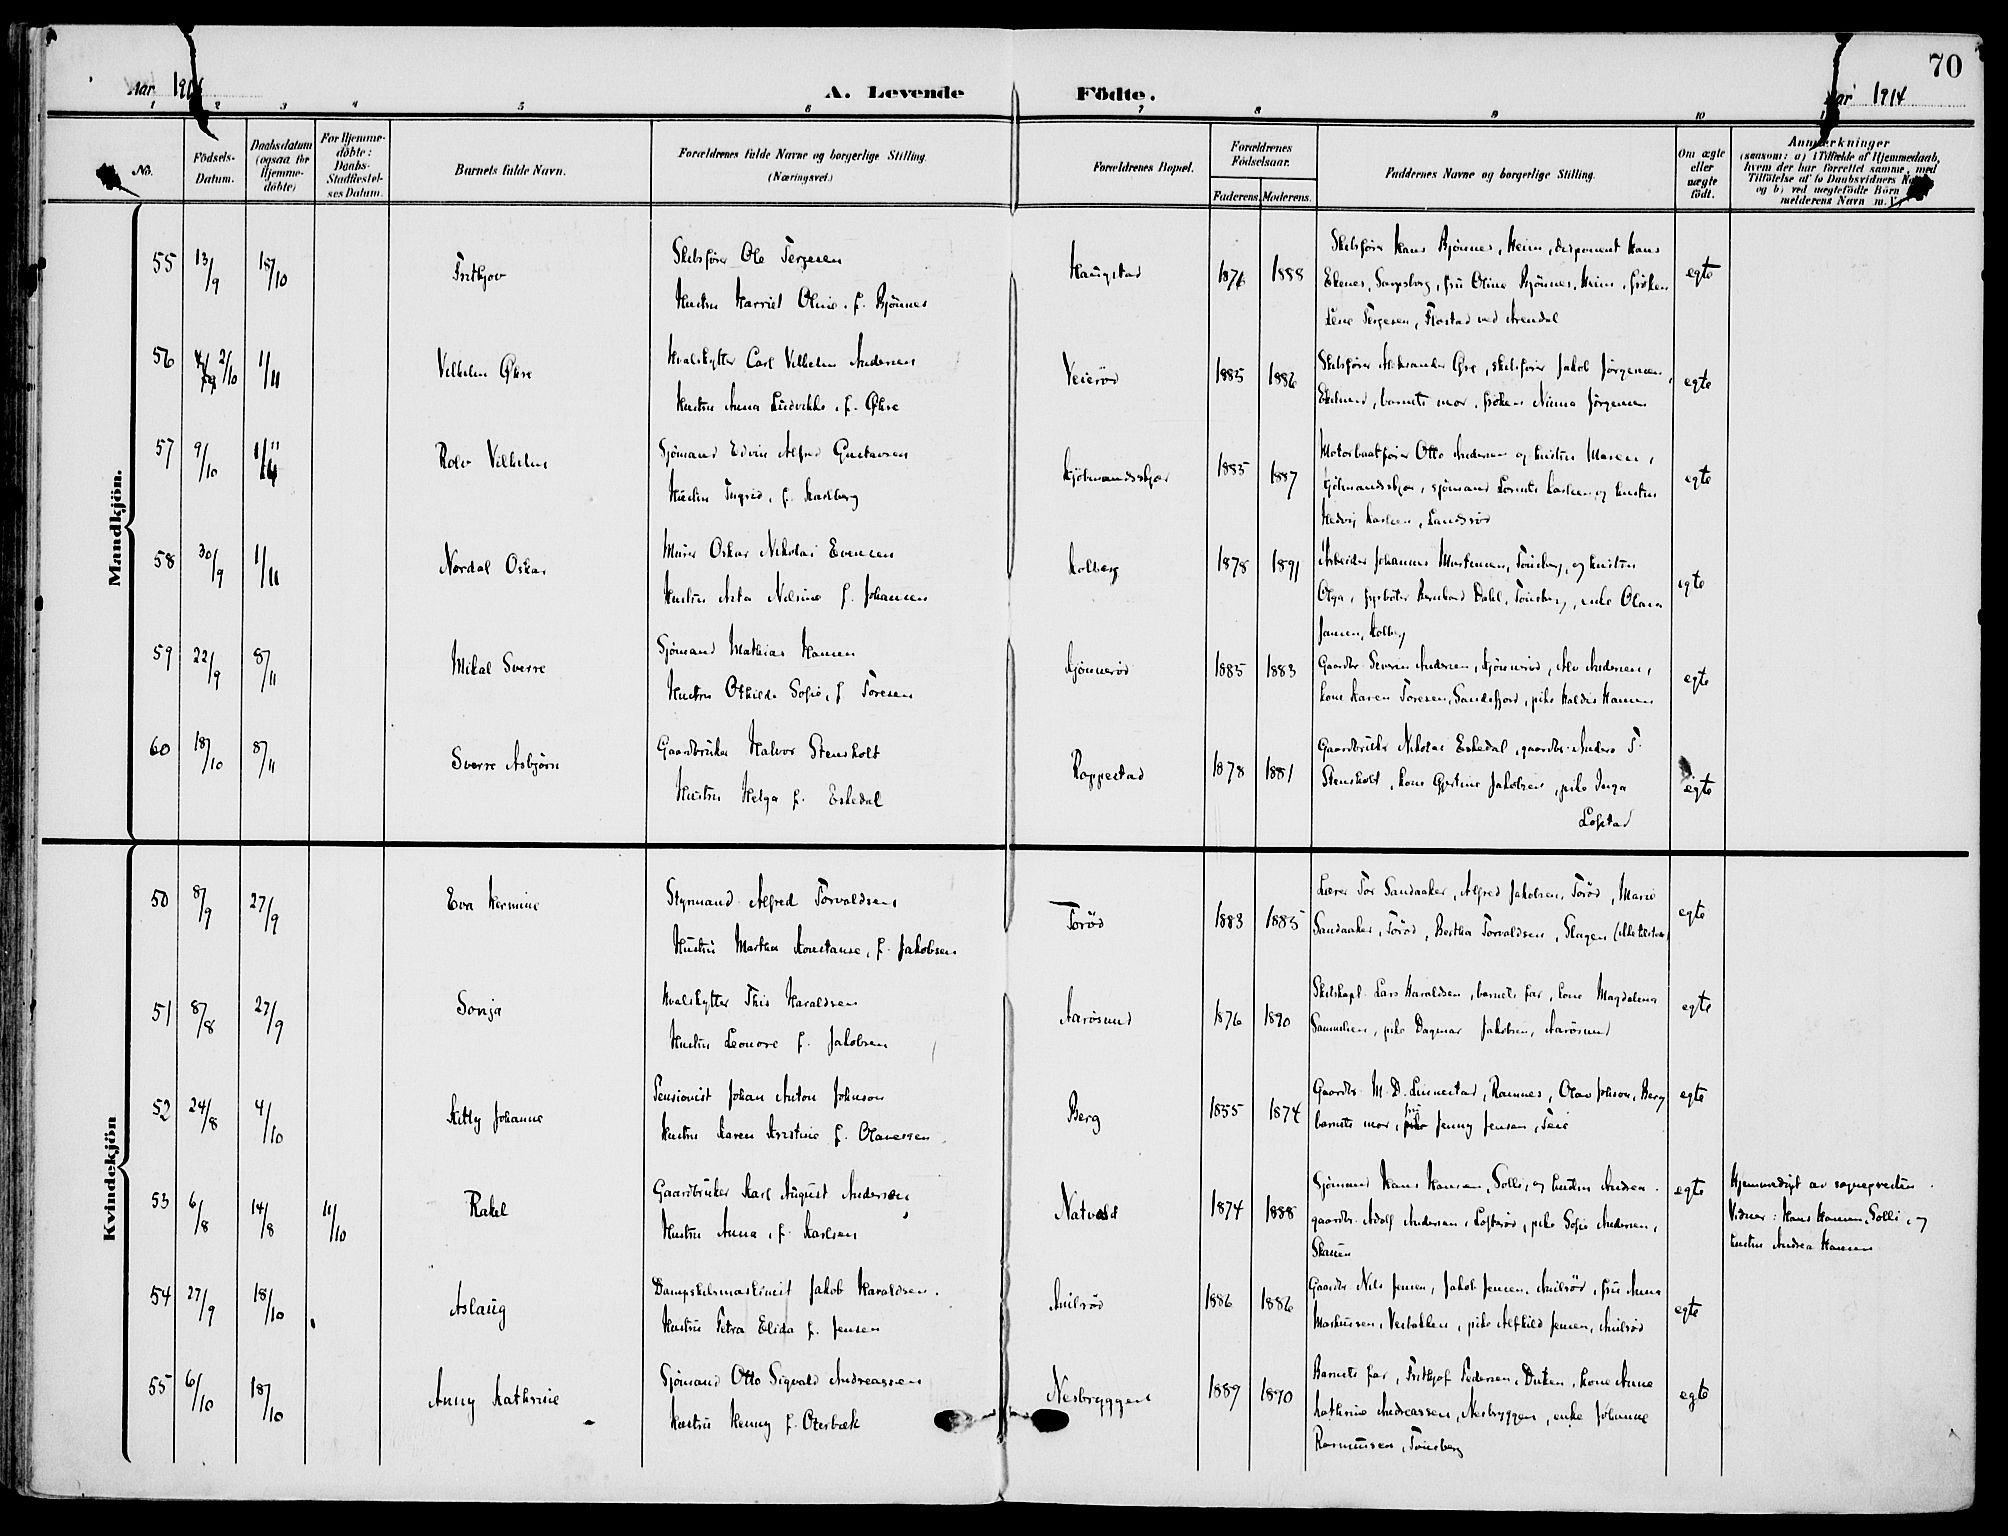 70
Aar 1914
A. Levende Födte.
Aar 1914
1 2 3 4 5 6 7 8 9 10
No.
Födsels-Datum.
Daabsdatum (ogsaa for Hjemme-döbte)
For Hjemme-döbte: Daabs-Stadfæstel-ses Datum.
Barnets fulde Navn.
Forældrenes fulde Navne og borgerlige Stilling. (Næringsvei.)
Forældrenes Bopæl.
Forældrenes Födselsaar.
Faderens. Moderens.
Faddernes Navne og borgerlige Stilling.
Om ægte eller uægte födt.
Anmærkninger
(saasom: a) i Tilfælde af Hjemmedaab,
hvem der har forrettet samme, med
Tilföielse af to Daabsvidners
og b) ved uægtefödte Börn
melderens Navn m. V.
Mandkjön.
55 13/9 18/10 Fritbjov
Skibsfører Ole Terjesen
Hustru Harriet Oline, f. Bjønnes
Haugstad 1876 1888
Skibsfører Hans Bjønnes, Heim, disponent Hans
Ekenes, Sarpsborg, fru Oline Bjønnes, Heim, frøken
Lene Terjesen, Flostad ved Arendal
egte
56 2/10 1/11 Vilhelm Økre
Hvalskytter Carl Vilhelm Andersen
Hustru Anna Ludvikke, f. Økre
Veierød 1885 1886
Skibsfører Aleksander Øre, skibsfører Jakob Jørgensen,
barnets mor, frøken Jørgensen
egte
57 9/10 1/11 Rolv Vilhelm
Sjømand Edvin Alfred Gustavsen
Hustru Ingrid, f. Karlberg
Kjølmandsskjær 1885 1887
Motorbaatfører Otto Andersen og hustru Maren,
Kjølmandsskjær, sjømand Lorents Karlsen og hustru
Hedvig Karlsen, Landsrød
egte
58 30/9 1/11 Nordal Oskar
Murer Oskar Nikolai Evensen
Hustru Asta Nilsine f. Johansen
Kolberg 1878 1891
Arbeider Johannes Mortensen, Tønsberg, og hustru
Olga, fyrbøter Bernhard Dahl, Tønsberg, enke Olava
Jansen, Kolberg
egte
59 22/9 8/11 Mikal Sverre
Sjømand Mathias Hansen
Hustru Othilde Sofie, f. Toresen
Gjønnerød 1885 1883
Gaardbr. Severin Andersen, Gjønnerød, Alv Andersen,
kone Karen Toresen, Sandefjord, pike Haldis Hansen
egte
60 18/10 8/11 Sverre Asbjørn
Gaardbruker Halvor Stensholt
Hustru Helga f. Eskedal
Roppestad 1878 1881
Gaardbruker Nikolai Eskedal, gaardbr. Anders T.
Stensholt, kone Gjertine Jakobsen, pike Inga
Lofstad
egte
Kvindekjön
50 8/9 27/9 Eva Hermine
Styrmand Alfred Torvaldsen
Hustru Martha Konstanse, f. Jakobsen
Torød 1883 1885
Lærer Tor Sandaaker, Alfred Jakobsen, Torød, Marie
Sandaaker, Torød, Bertha Torvaldsen, Slagen
egte
51 8/8 27/9 Sonja
Hvalskytter This Haraldsen
Hustru Leonore f. Jakobsen
Aarøsund 1876 1890
Skibskapt. Lars Haraldsen, barnets far, kone Magdalena
Samuelsen, pike Dagmar Jakobsen, Aarøsund
egte
52 24/8 4/10 Kitty Johanne
Pensionist Johan Anton Johnson
Hustru Karen Kristine f. Olavessen
Berg 1855 1874
Gaardbr. M. D. Linnestad, Ramnes, Olav Johson, Berg
barnets mor, fru Jenny Jensen, Teie
egte
53 6/8 14/8 11/10 Rakel
Gaardbruker Karl August Andersen
Hustru Anna, f. Karlsen
Natvald 1874 1888
Sjømand Hans Hansen, Solli, og hustru Andrea.
gaardbr. Adolf Andersen, Lofterød, pike Sofie Andersen,
Skauen
egte
Hjemmedøpt av sognepresten.
Vidner: Hans Hansen, Solli, og
hustru Andrea Hansen
54 27/9 18/10 Aslaug
Dampskibsmaskinist Jakob Haraldsen.
Hustru Petra Elida f. Jensen
Smilrød 1886 1886
Gaardbr. Nils Jensen, Jakob Jensen, Smilrød, fru Anna
Markussen, Vestakken, pike Alfhild Jensen, Smilrød
egte
55 6/10 18/10 Anny Kathrine
Sjømand Otto Sigvald Andreassen
Hustru Henny f. Oterbæk
Nesbryggen 1889 1890
Barnets far, Frithjof Pedersen, Duken, kone Anne
Kathrine Andreassen, Nesbryggen, enke Johanne
Rasmussen, Tønsberg
egte